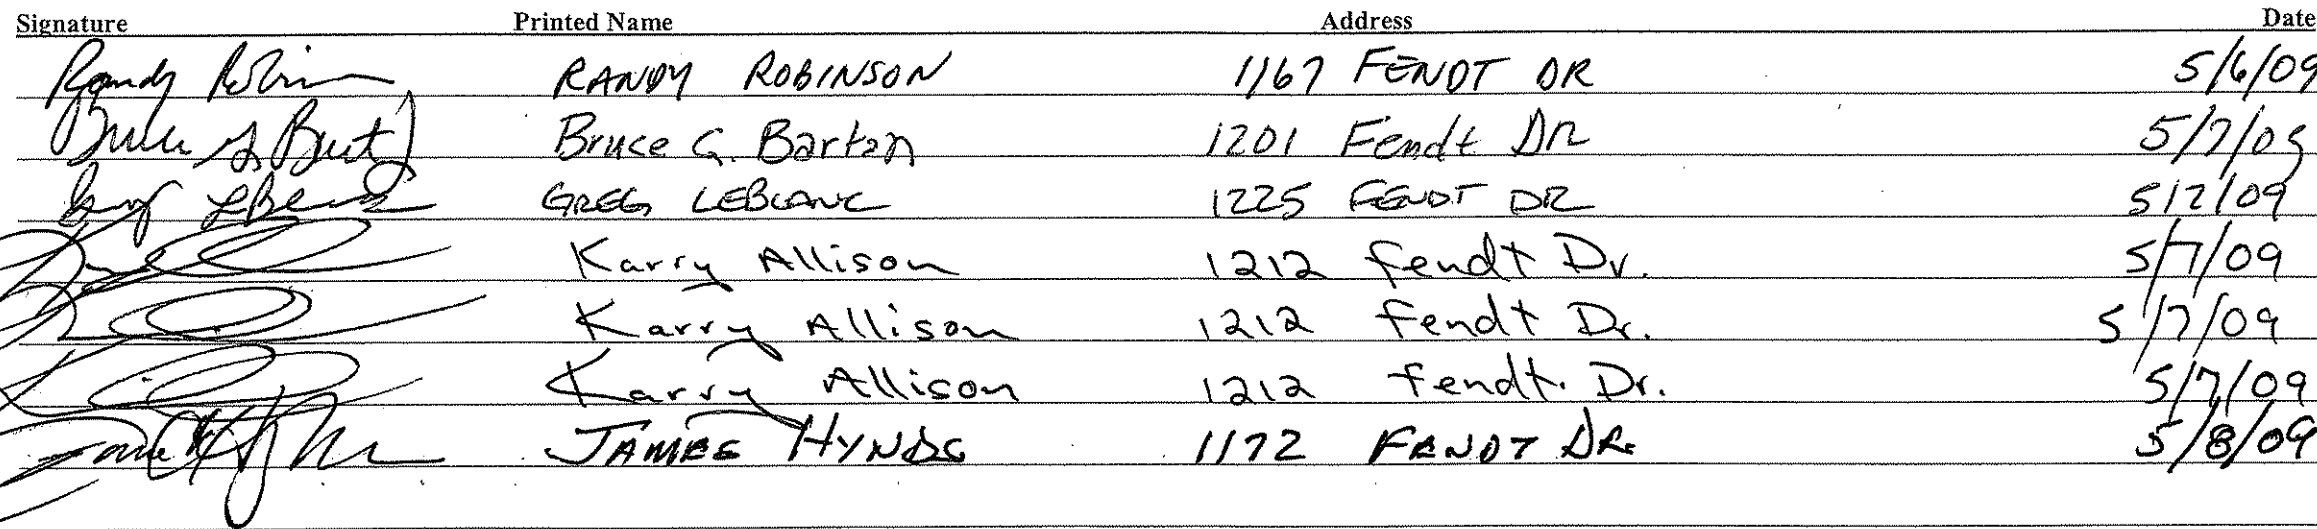 Signature Printed Name Address Date
Randy Robinson RANDY ROBINSON 1167 FENDT DR 5/6/09
Bruce G. Barton 1201 Fendt DR 5/7/09
GREG LEBLANC 1225 FENDT DR 5/7/09
Karry Allison 1212 Fendt Dr. 5/7/09
Karry Allison 1212 Fendt Dr. 5/7/09
Karry Allison 1212 Fendt. Dr. 5/7/09
JAMES HYNDS 1172 FENDT DR. 5/8/09